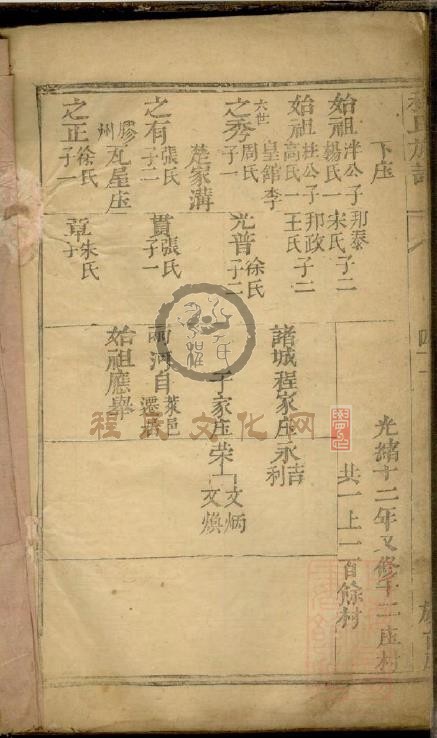 程氏族譜
下庄
始祖泮公子邦泰
楊氏一宋氏子二
始祖柱公子邦政子二
高氏一王氏
皇館李
六世
之秀周氏子一
光普徐氏子二
楚家溝
之有張氏子二
貫張氏子一
膠州瓦屋庄
之正徐氏子一
章朱氏子
光緒十二年又修十二庄村
共一上一百餘村
諸城程家庄永吉利
于家庄荣文炳文煥
兩河自萊邑遷居
始祖應舉
程氏文化网